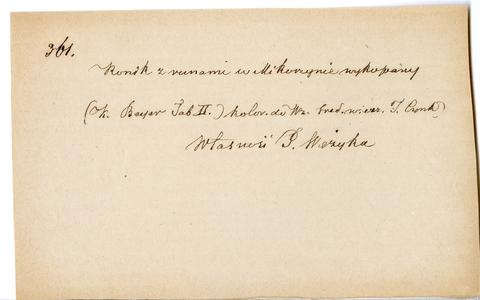 361.
Konik z runami w Mikorzynie wykopany
(K. Beyer Tab. II.) kolor. do Wz. śred. wiecz.
Własność P. Wężyka